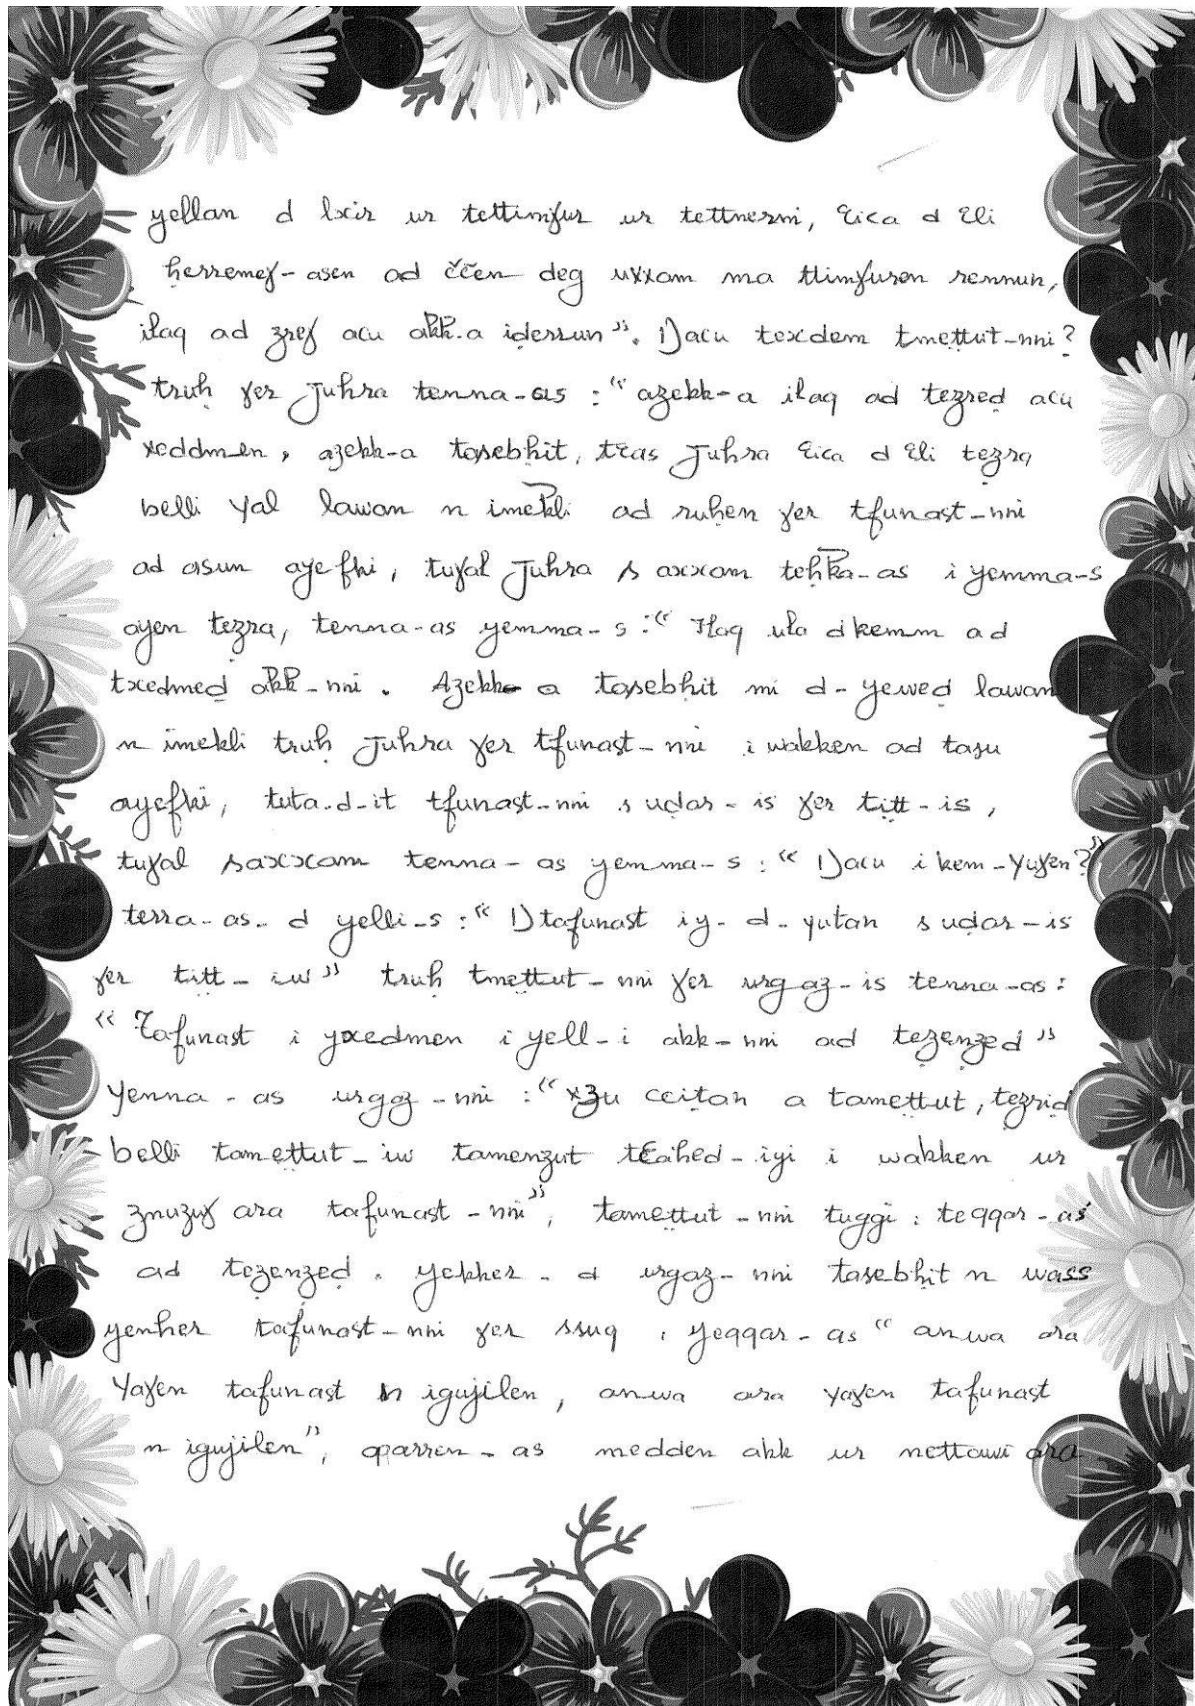 yellan d lxir ur tettimɣur ur tettnerni, Ɛica d Ɛli
ḥerremeɣ-asen ad ččen deg uxxam ma ttimɣuren rennun,
ilaq ad ẓreɣ acu akk-a iḍerrun". Dacu texdem tmeṭṭut-nni?
truḥ ɣer Juhra tenna-as : "azekk-a ilaq ad teẓreḍ acu
xeddmen, azekk-a taṣebḥit, tɛas Juhra Ɛica d Ɛli teẓra
belli yal lawan n imekli ad ruḥen ɣer tfunast-nni
ad asun ayefki, tuɣal Juhra s axxam teḥka-as i yemma-s
ayen teẓra, tenna-as yemma-s : " Ilaq ula d kemm ad
txedmeḍ akk-nni . Azekk-a taṣebḥit mi d-yeweḍ lawan
n imekli truḥ Juhra ɣer tfunast-nni i wakken ad tasu
ayefki, tuta-d-it tfunast-nni s uḍar-is ɣer tiṭṭ-is,
tuɣal s axxam tenna-as yemma-s : " Dacu i kem-yuɣen ?"
terra-as-d yelli-s : " D tafunast iy-d-yutan s uḍar-is
ɣer tiṭṭ-iw " truḥ tmeṭṭut-nni ɣer urgaz-is tenna-as :
" Tafunast i yxedmen i yell-i akk-nni ad tezenzeḍ "
Yenna-as urgaz-nni : " xzu ceiṭan a tameṭṭut, teẓriḍ
belli tameṭṭut-iw tamenzut tɛahed-iyi i wakken ur
znuzuɣ ara tafunast-nni ", tameṭṭut-nni tuggi : teqqar-as
ad tezenzeḍ . yekker-d urgaz-nni taṣebḥit n wass
yenher tafunast-nni ɣer ssuq , yeqqar-as " anwa ara
Yaɣen tafunast n igujilen, anwa ara yaɣen tafunast
n igujilen", qarren-as medden akk ur nettawi ara